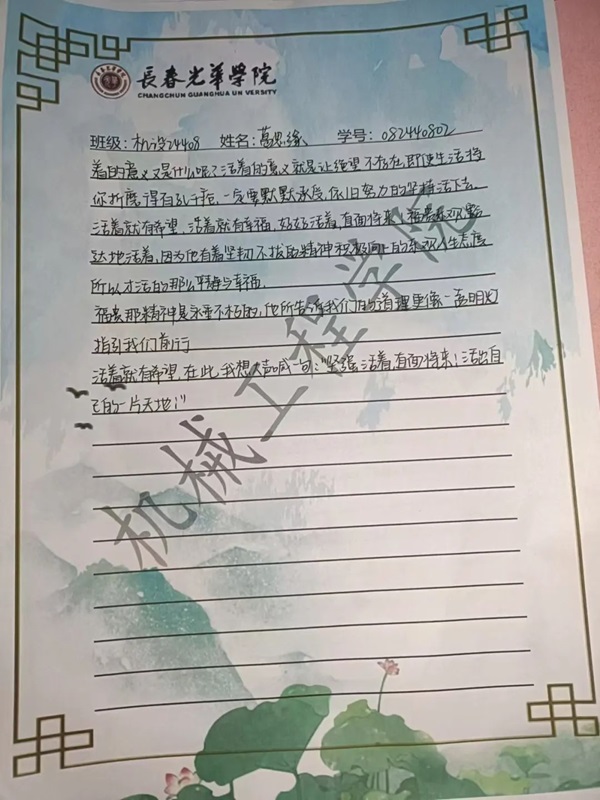 長春光華學院
CHANGCHUN GUANGHUA UNIVERSITY
班级:机设24408 姓名:葛思缘 学号:082440802
着的意义又是什么呢?活着的意义就是让绝望不存在,即使生活将
你折磨得百孔千疮,一定要默默承受,依旧努力的坚持活下去。
活着就有希望,活着就有幸福,好好活着,直面将来,福贵乐观豁
达地活着,因为他有着坚韧不拔的精神积极向上的乐观人生态度
所以才活的那么平静与幸福。
福贵那精神是永垂不朽的,他所告诉我们的道理更像一盏明灯
指引我们前行
活着就有希望,在此,我想大声喊一句:"坚强活着,直面将来!活出自
己的一片天地!"
机械工程学院